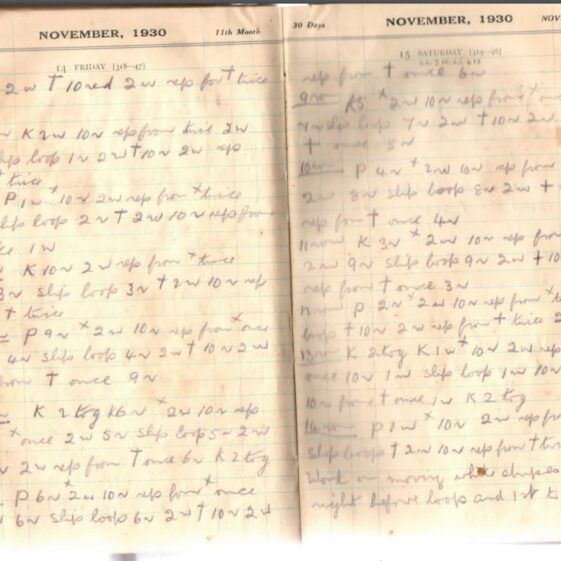 NOVEMBER, 1930 11th Month
14 FRIDAY (318-47)
2w † 10 red 2w rep for † twice
K 2w 10n rep from twice 3w
slip loop 1n 2w † 10n 2w rep
† twice
P 1w × 10n 2w rep from × twice
slip loop 2n † 2w 10n rep from
1w
K 10n 2w rep from × twice
3n slip loop 3n † 2w 10n rep
† twice
P 9n × 2w 10n rep from × once
4n slip loop 4n 2w † 10n 2w
from † once 9n
K 2tog K6n × 2w 10n rep
× once 2w 5n slip loop 5n 2w
2w rep from † once 6n K 2 tog
P 6n × 2w 10n rep from × once
6n slip loop 6n 2w † 10n 2w
30 Days NOVEMBER, 1930 NOV
15 SATURDAY (319-46)
rep from † once 6n
9 row K5 × 2w 10n rep from × once
7n slip loop 7n 2w † 10n 2w
† once 5n
10 row P 4n × 2w 10n rep from
2w 8n slip loop 8n 2w †
rep from † once 4n
11 row K 3n × 2w 10n rep from
2w 9n slip loop 9n 2w † 10
rep from † once 3n
12 row P 2n × 2w 10n rep from ×
loop † 10n 2w rep from † twice 2
13 row K 2tog K1w × 10n 2w rep
once 10n 1w slip loop 1w 10n
10n from † once 1w K 2tog
14 row P 1w × 10n 2w rep from
slip loop † 2w 10n rep from † twice
Work on moving white stripes
right before loop and 1st